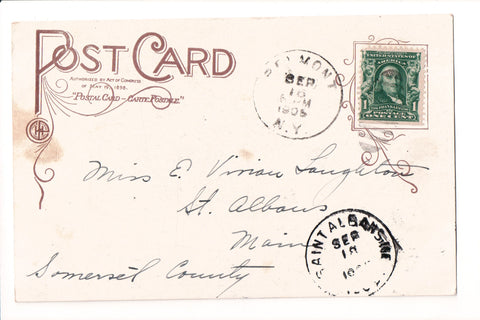 POST CARD
AUTHORIZED BY ACT OF CONGRESS
OF MAY 19, 1898.
"POSTAL CARD — CARTE POSTALE."
BELMONT
SEP
18
6 PM
N.Y.
1
POSTAGE
ONE CENT
Miss E. Vivian Laughton
St. Albans
Maine
Somerset County
SAINT ALBANS
SEP
18